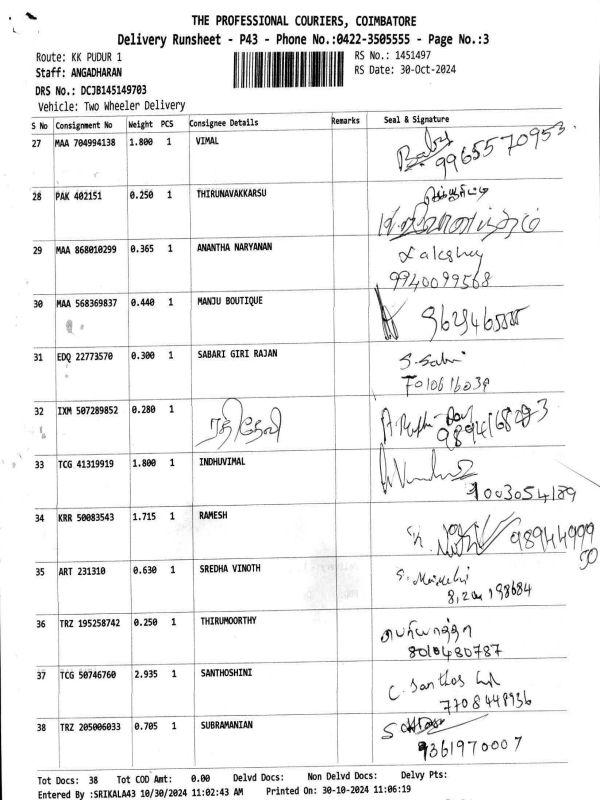 THE PROFESSIONAL COURIERS, COIMBATORE
Delivery Runsheet - P43 - Phone No.:0422-3505555 - Page No.:3
Route: KK PUDUR 1 RS No.: 1451497
Staff: ANGADHARAN RS Date: 30-Oct-2024
DRS No.: DCJB145149703
Vehicle: Two Wheeler Delivery
S No Consignment No Weight PCS Consignee Details Remarks Seal & Signature
27 MAA 704994138 1.800 1 VIMAL Baby
9965570953
28 PAK 402151 0.250 1 THIRUNAVAKKARSU
29 MAA 868010299 0.365 1 ANANTHA NARYANAN
9940099568
30 MAA 568369837 0.440 1 MANJU BOUTIQUE
31 EDQ 22773570 0.300 1 SABARI GIRI RAJAN S. Sabari
7010616039
32 IXM 507289852 0.280 1 ரதிதேவி
33 TCG 41319919 1.800 1 INDHUVIMAL
9003054189
34 KRR 50083543 1.715 1 RAMESH
35 ART 231310 0.630 1 SREDHA VINOTH
36 TRZ 195258742 0.250 1 THIRUMOORTHY
8010480787
37 TCG 50746760 2.935 1 SANTHOSHINI C. Santhosh
7708448936
38 TRZ 205006033 0.705 1 SUBRAMANIAN
9361970007
Tot Docs: 38 Tot COD Amt: 0.00 Delvd Docs: Non Delvd Docs: Delvy Pts:
Entered By :SRIKALA43 10/30/2024 11:02:43 AM Printed On: 30-10-2024 11:06:19